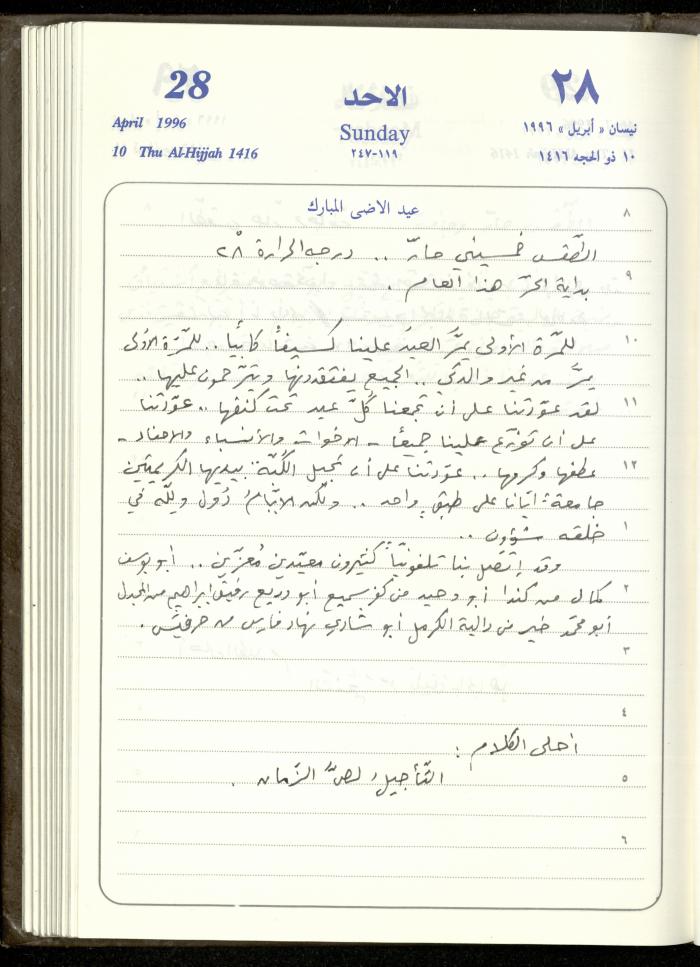 28 الاحد ٢٨
April 1996 Sunday نيسان « أبريل » ١٩٩٦
10 Thu Al-Hijjah 1416 ٢٤٧-١١٩ ١٠ ذو الحجه ١٤١٦
عيد الاضى المبارك
٨
الطّقس خمسيني حارّ .. درجه الحرارة ٢٨ْ
٩
بداية الحرّ هذا العام .
١٠
للمرّة الأولى يمرُّ العيد علينا كسيفاً كابيًا .. للمرّة الأولى
يمرّ من غير والدتي .. الجميع يفتقدونها ويترحّمون عليها ..
١١
لقد عوّدتنا على أن تجمعنا كُلَّ عيد تحت كنفها .. عوّدتنا
على أن توزّع علينا جميعًا - الاخوات والأنسباء والاحفاد -
١٢
عطفها وكرمها .. عوّدتنا على أن تجبل الكُبّة بيديها الكريمتين
جامعةً ايّانا على طبق واحد .. ولكن الايّامُ دُول وللّه في
١
خلقه شؤون ..
وقد إتّصل بنا تلفونيّاً كثيرون معيّدين مُعزّين .. أبو يوسف
٢
كمال من كندا أبو وحيد من كفرسميع أبو وديع رفيق ابراهيم من المجدل
أبو محمّد خير من دالية الكرمل أبو شادي نهاد فارس من حرفيش .
٣
٤
أحلى الكلام :
٥
التّأجيلُ لصُّ الزّمان .
٦